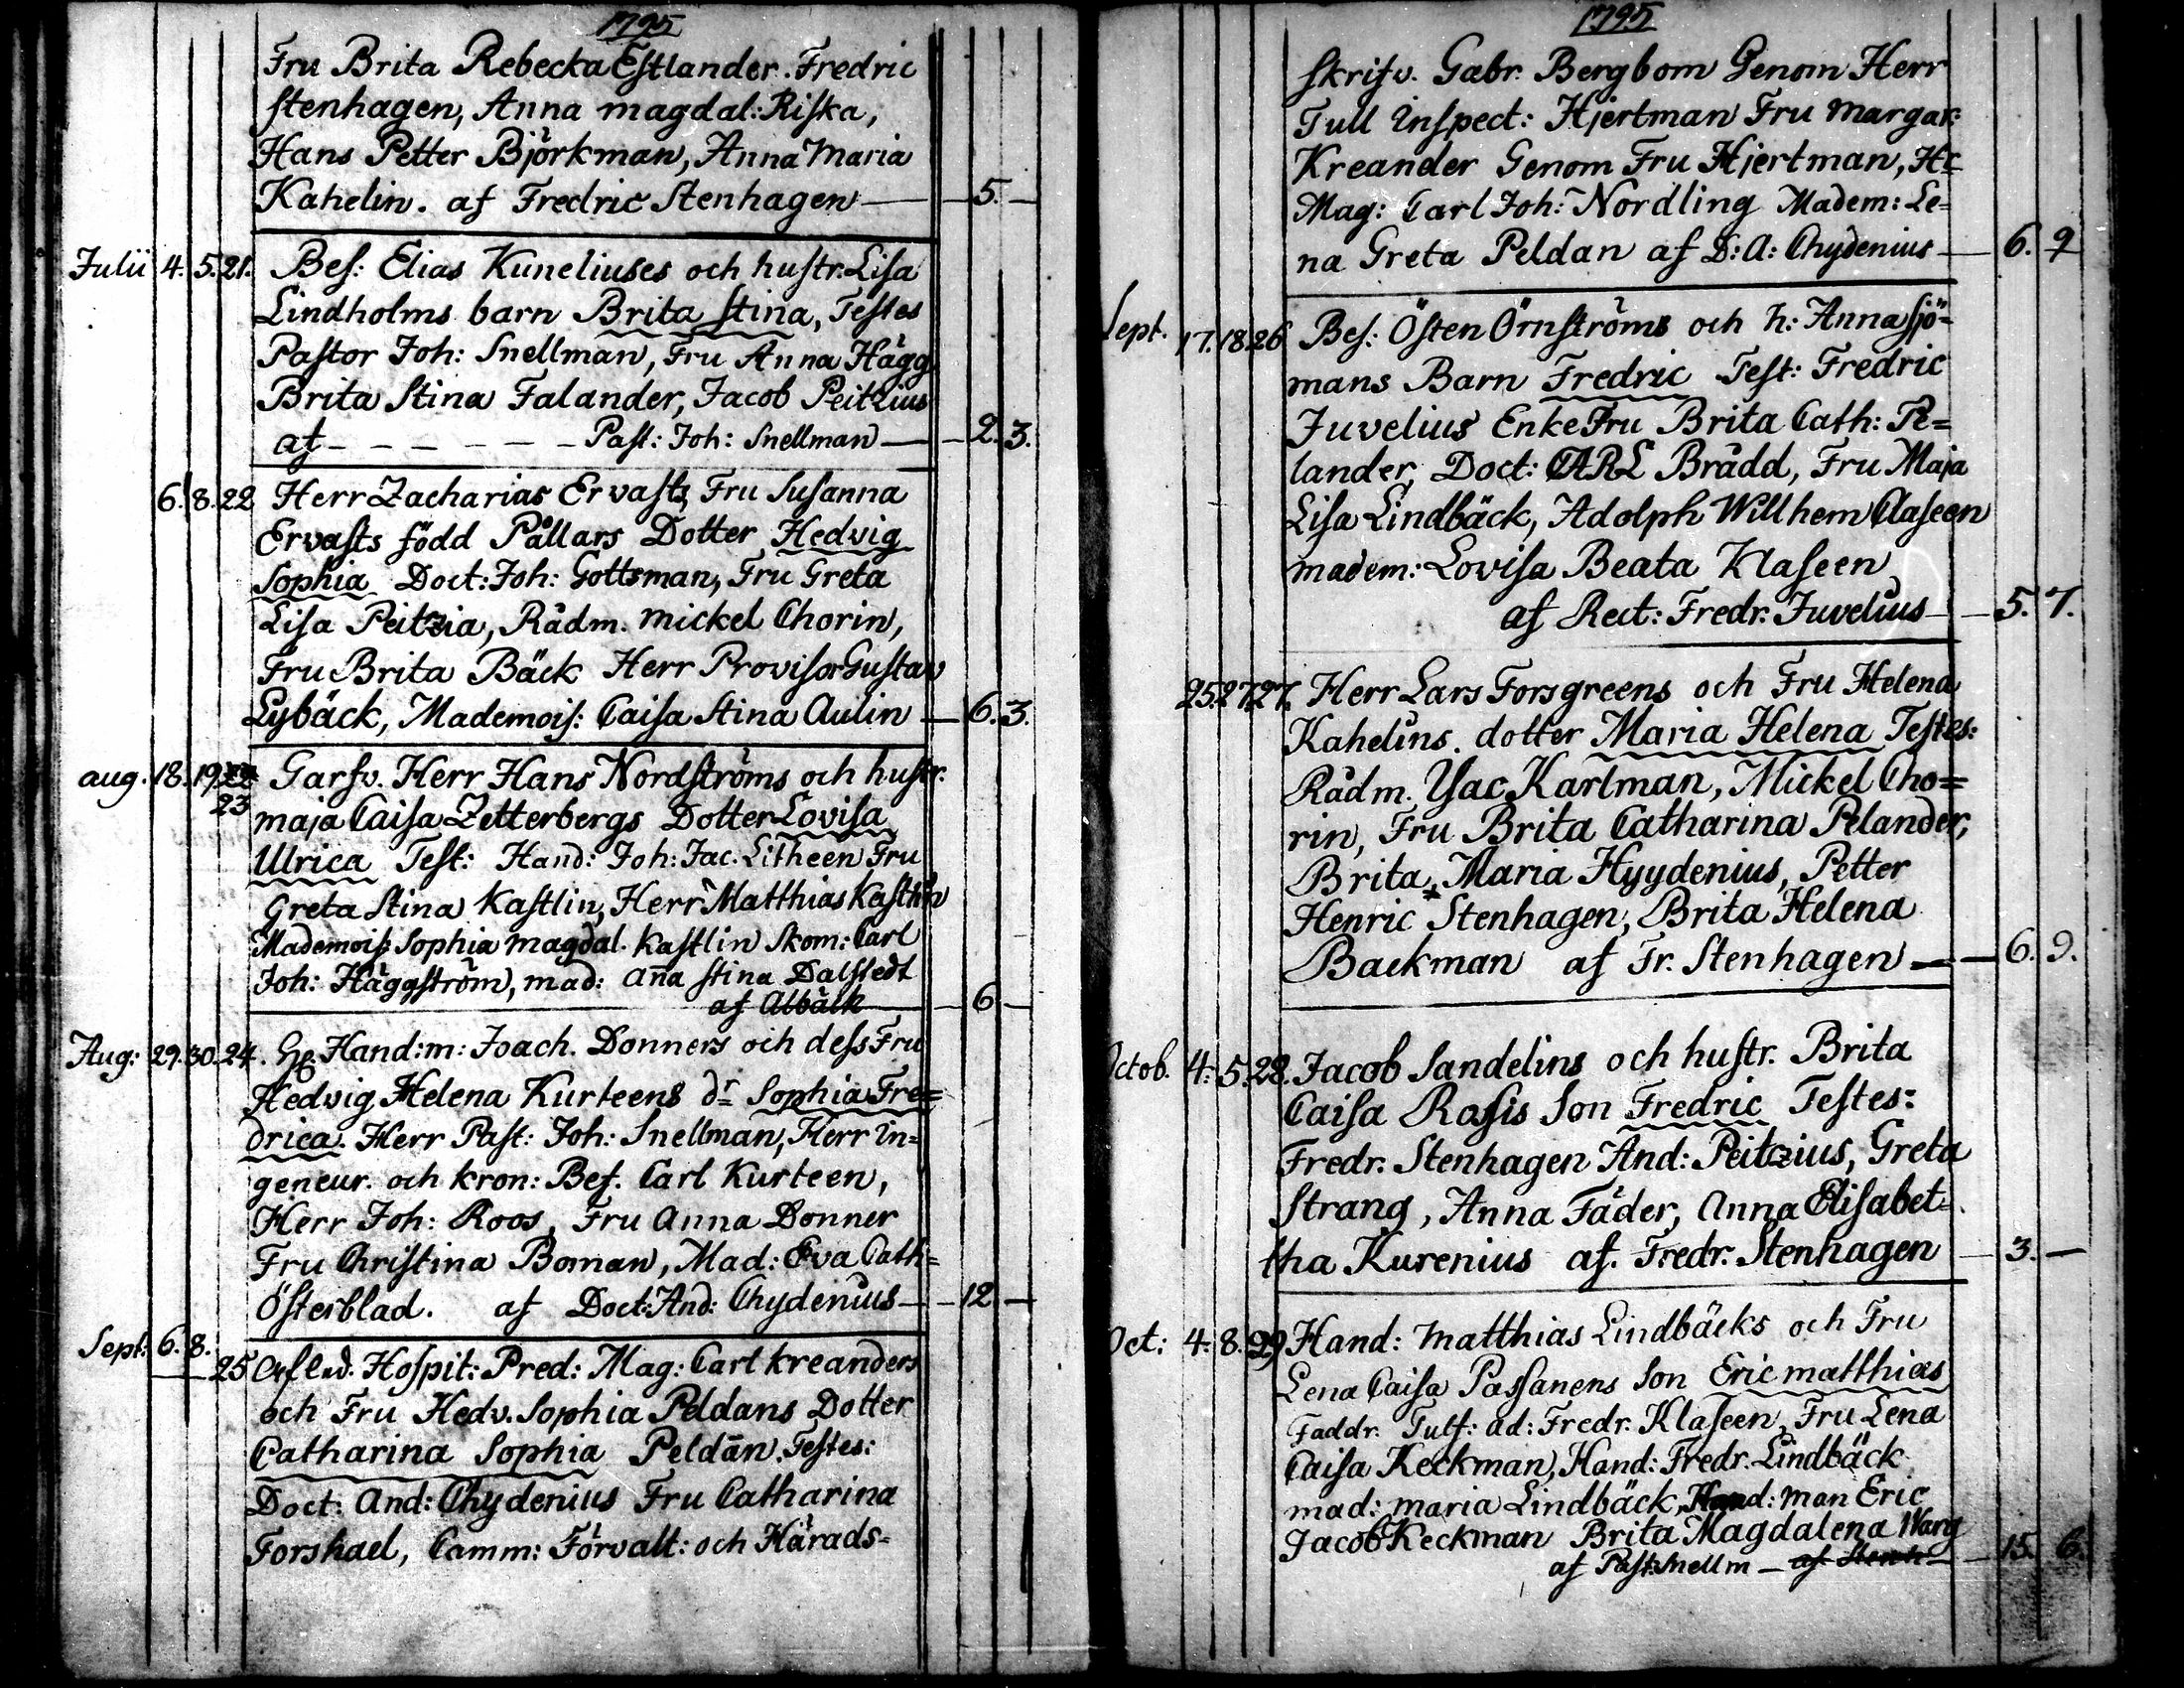 1795
Fru Brita Rebecka Estlander. Fredric
Stenhagen, Anna magdal: Riska,
Hans Petter Björkman, Anna Maria
Kahelin. af Fredric Stenhagen — 5. —
Julii 4. 5. 21. Bes: Elias Kuneliuses och hustr. Lisa
Lindholms barn Brita Stina, Testes
Pastor Joh: Snellman, Fru Anna Hägg
Brita Stina Falander, Jacob Peitzius
af — — — — — — Past: Joh: Snellman — 2. 3.
6. 8. 22 Herr Zacharias Ervasts, Fru Susanna
Ervasts född Pållars Dotter Hedvig
Sophia Doct: Joh: Gottsman, Fru Greta
Lisa Peitzia, Rådm. Mickel Chorin,
Fru Brita Bäck Herr Provisor Gustav
Lybäck, Mademois: Caisa Stina Aulin — 6. 3.
aug. 18. 19. Garfv. Herr Hans Nordströms och hustr.
23 maja Caisa Zetterbergs Dotter Lovisa
Ulrica Test: Hand: Joh: Jac. Litheen Fru
Greta Stina Kastlin, Herr Matthias Kastlin
Mademois: Sophia magdal. Kastlin Skom: Carl
Joh: Häggström, mad: Ana Stina Dalstedt
af Albäck — 6 —
Aug: 29. 30. 24. Hand: m: Joach. Donners och dess Fru
Hedvig Helena Kurteens dr Sophia Fre=
drica. Herr Past: Joh: Snellman, Herr in=
geneur. och kron: Bef. Carl Kurteen,
Herr Joh: Roos, Fru Anna Donner
Fru Christina Boman, Mad: Eva Cath=
Österblad. af Doct: And: Chydenius — 12 —
Sept: 6. 8.
25 Afled. Hospit: Pred: Mag: Carl Kreanders
och Fru Hedv. Sophia Peldans Dotter
Catharina Sophia Peldän. Testes:
Doct: And: Chydenius Fru Catharina
Forshael, Camm: Förvalt: och Härads=
1795
skrifv. Gabr. Bergbom Genom Herr
Tull Inspect: Hjertman Fru Margar:
Kreander Genom Fru Hjertman, Hr
Mag: Carl Joh: Nordling Madem: Le=
na Greta Peldan af D: A: Chydenius — 6. 9
Sept. 17. 18. 26 Bes: Östen Örnströms och h: Anna Sjö=
mans Barn Fredric Test: Fredric
Juvelius Enke Fru Brita Cath: Pe=
lander, Doct: CARL Brädd, Fru Maja
Lisa Lindbäck, Adolph Willhem Claseen
madem: Lovisa Beata Klaseen
af Rect: Fredr. Juvelius — 5. 7.
25. 27. 27. Herr Lars Forsgreens och Fru Helena
Kahelins. dotter Maria Helena Testes:
Rådm. Ysac Karlman, Mickel Cho=
rin, Fru Brita Catharina Pelander,
Brita, Maria Hyydenius, Petter
Henric Stenhagen, Brita Helena
Backman af Fr. Stenhagen — 6. 9.
Octob. 4. 5. 28. Jacob Sandelins och hustr. Brita
Caisa Rasis Son Fredric Testes:
Fredr. Stenhagen And: Peitzius, Greta
Strang, Anna Fäder, Anna Elisabet=
tha Kurenius af. Fredr. Stenhagen — 3. —
Oct: 4. 8. 29 Hand: Matthias Lindbäcks och Fru
Lena Caisa Passanens Son Eric matthias
Faddr. Tulf: ad: Fredr. Klaseen, Fru Lena
Caisa Keckman, Hand: Fredr. Lindbäck
mad: maria Lindbäck, Hand: man Eric
Jacob Keckman Brita Magdalena Wang
af Past: Snellm — af Stenh — 15. 6.